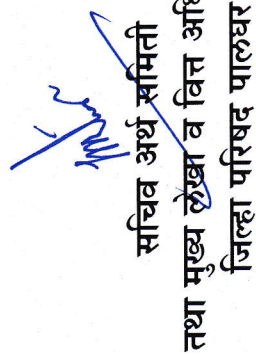 सचिव अर्थ समिती
तथा मुख्य लेखा व वित्त
जिल्हा परिषद पालघर